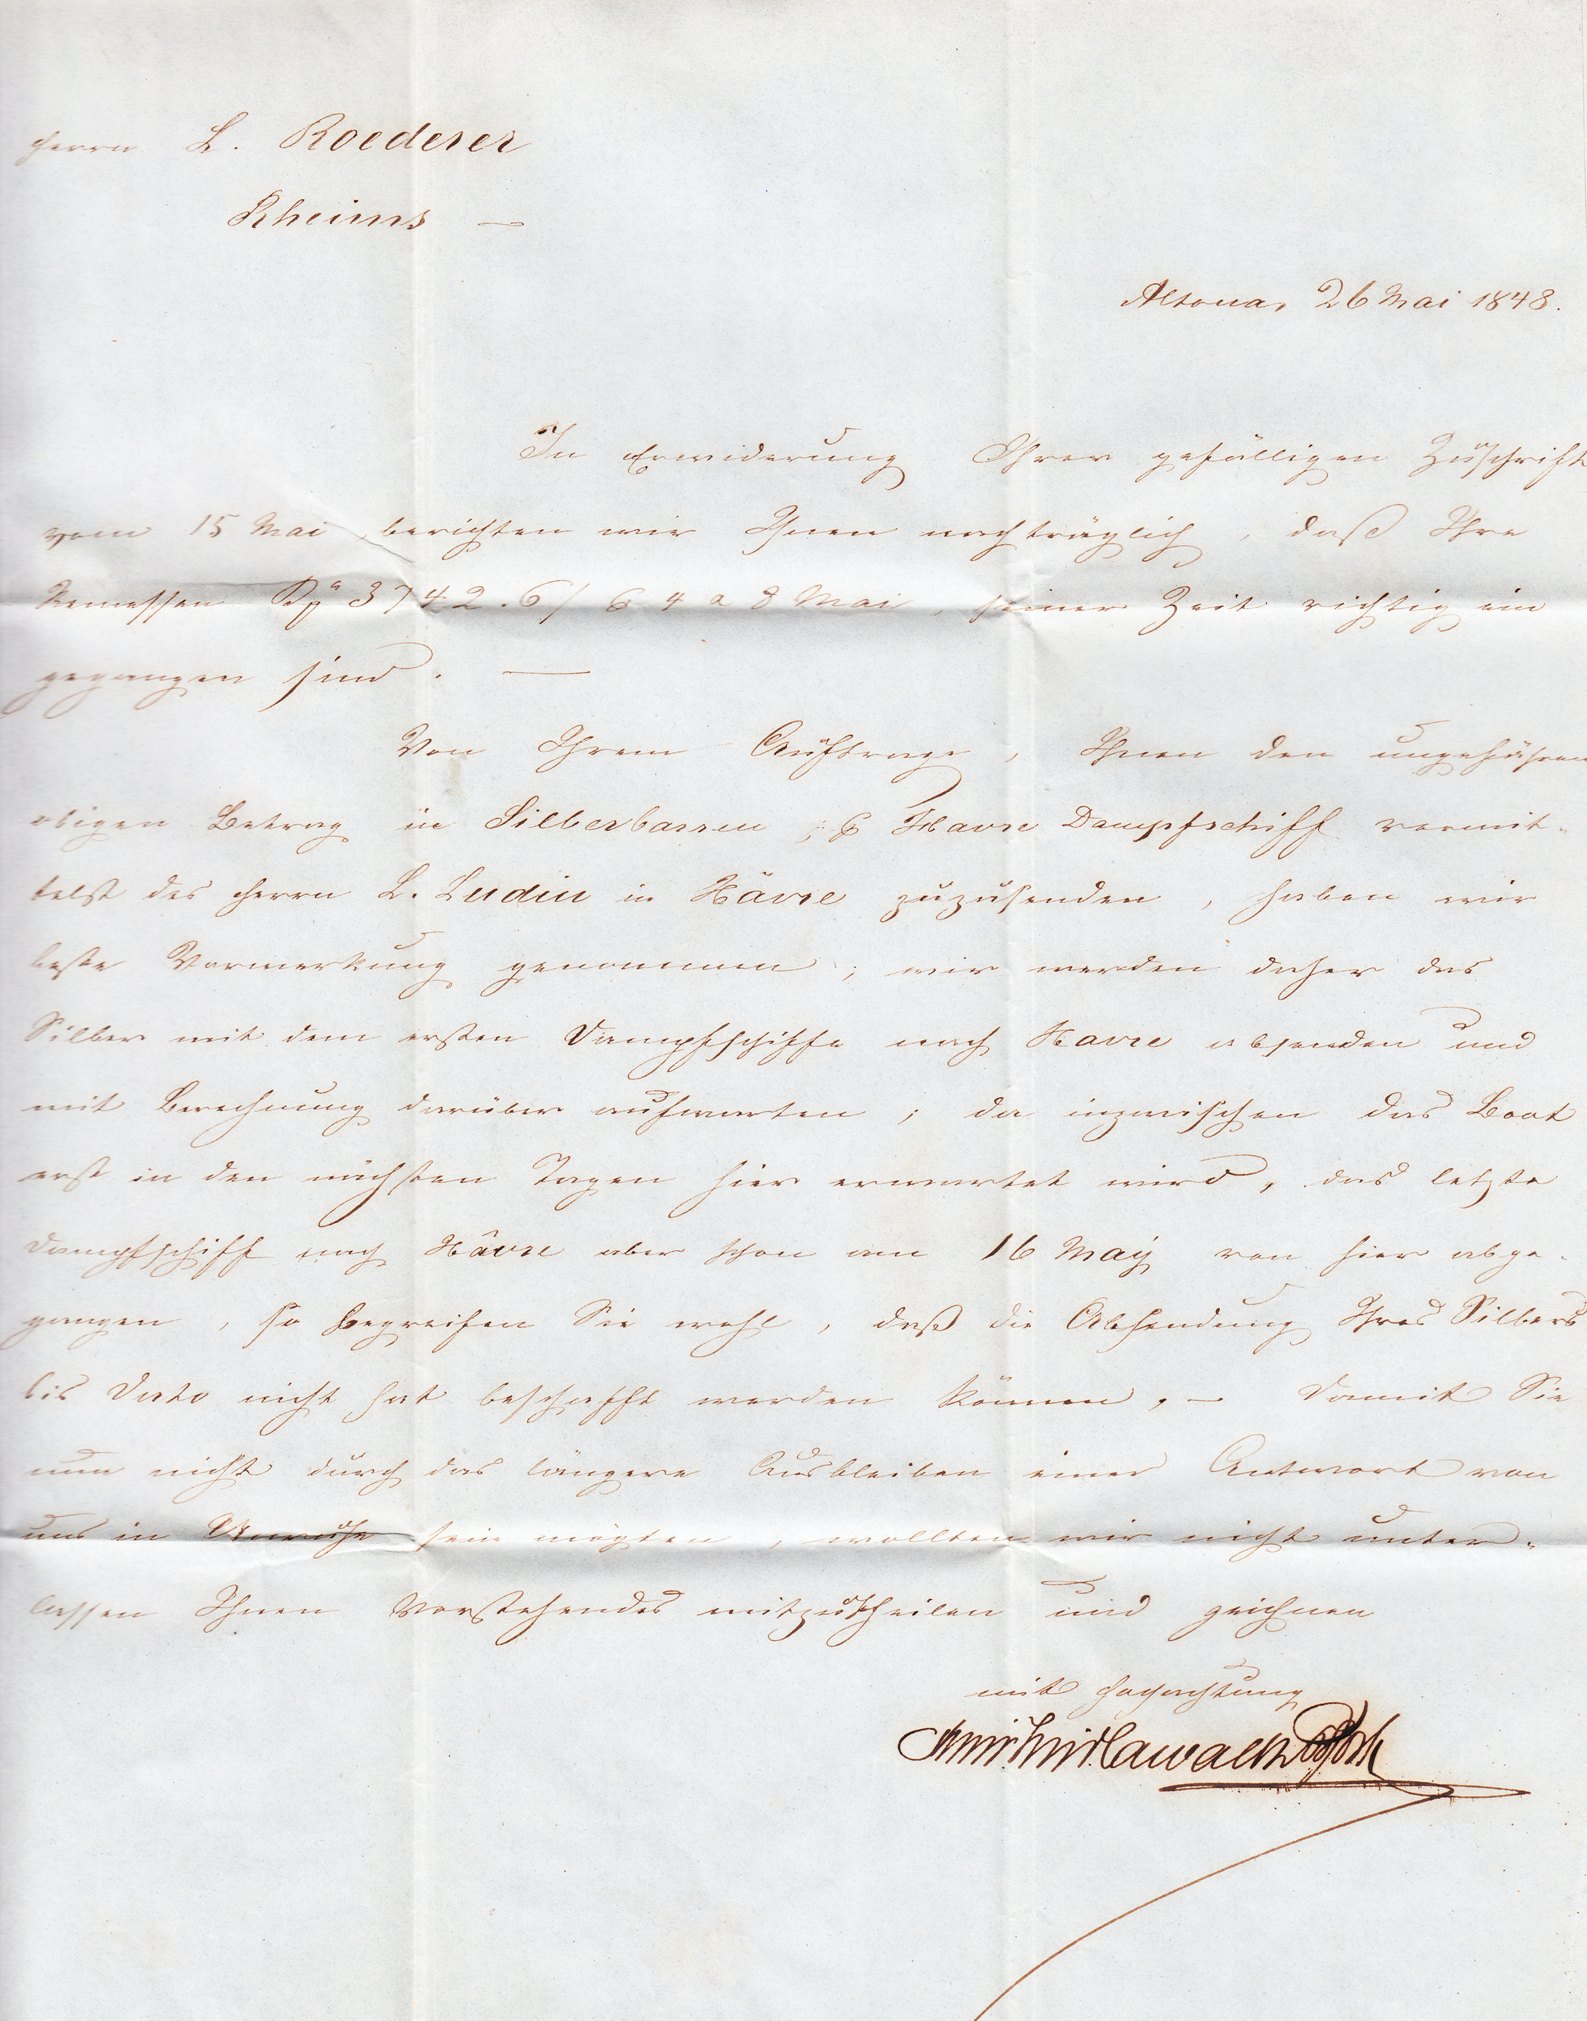 Herrn L. Roederer
Rheims —
Altona, 26 Mai 1848.
In Erwiderung Ihrer gefälligen Zuschrift
vom 15 Mai, berichten wir Ihnen nachträglich, daß Ihre
Remessen 3742.6/ 6 4 a 8 Mai, seiner Zeit richtig ein
gegangen sind. —
Von Ihrem Auftrage, Ihnen den ungefähren
obigen Betrag in Silberbarren, Havre Dampfschiff vermit-
telst des Herrn L. Ludin in Hâvre zuzusenden, haben wir
beste Vormerkung genommen; wir werden daher das
Silber mit dem ersten Dampfschiffe nach Havre absenden und
mit Berechnung darüber aufwarten; da inzwischen das Boot
erst in den nächsten Tagen hier erwartet wird, das letzte
Dampfschiff nach Hâvre aber schon am 16 May von hier abge-
gangen, so begreifen Sie wohl, daß die Absendung Ihres Silbers
bis Dato nicht hat beschafft werden können. — Damit Sie
nun nicht durch das längere Ausbleiben einer Antwort von
uns in Unruhe sein mögten, wollten wir nicht unter-
lassen Ihnen Vorstehendes mitzutheilen und zeichnen
mit Hochachtung